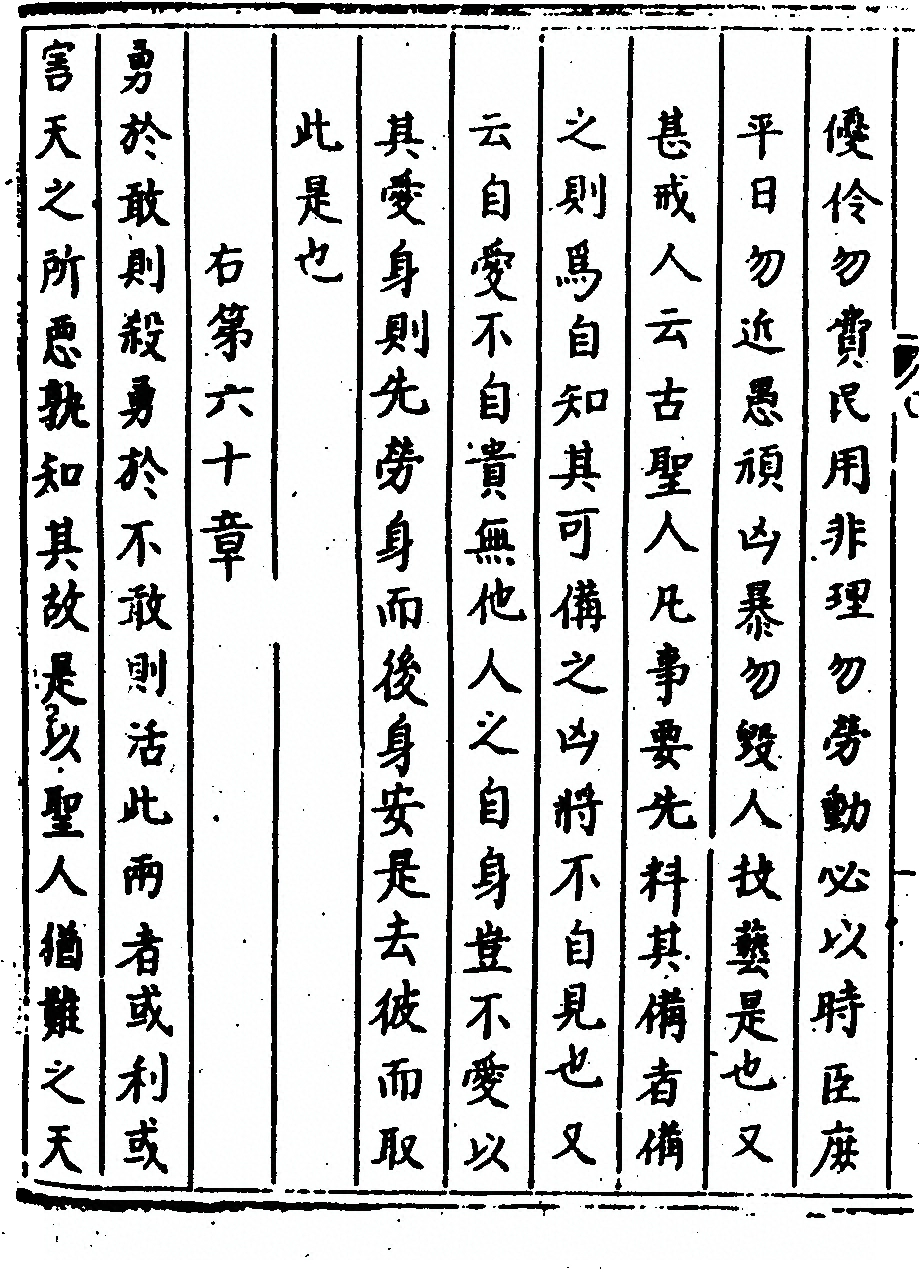 優伶勿費民用非理勿勞動必以時臣庶
平日勿近愚頑凶暴勿毀人技藝是也又
甚戒人云古聖人凡事要先料其備者備
之則爲自知其可備之凶將不自見也又
云自愛不自貴無他人之自身豈不愛以
其愛身則先勞身而後身安是去彼而取
此是也
右第六十章
勇於敢則殺勇於不敢則活此兩者或利或
害天之所惡孰知其故是以聖人猶難之天